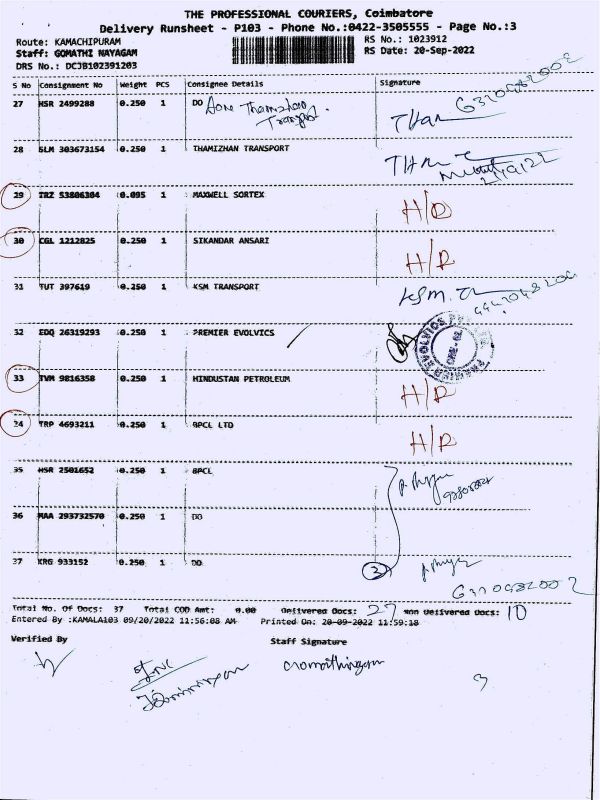 THE PROFESSIONAL COURIERS, Coimbatore
Delivery Runsheet - P103 - Phone No.:0422-3505555 - Page No.:3
Route: KAMACHIPURAM
Staff: GOMATHI NAYAGAM
DRS No.: DCJB102391203
RS No.: 1023912
RS Date: 20-Sep-2022
S No Consignment No Weight PCS Consignee Details Signature
27 HSR 2499288 0.250 1 DO
28 SLM 303673154 0.250 1 THAMIZHAN TRANSPORT
29 TRZ 53806304 0.095 1 MAXWELL SORTEX H/D
30 CGL 1212825 0.250 1 SIKANDAR ANSARI H/R
31 TUT 397619 0.250 1 KSM TRANSPORT
32 EDQ 26319293 0.250 1 PREMIER EVOLVICS
33 TVM 9816358 0.250 1 HINDUSTAN PETROLEUM H/R
34 TRP 4693211 0.250 1 BPCL LTD H/R
35 HSR 2501652 0.250 1 BPCL
36 MAA 293732570 0.250 1 DO
37 KRG 933152 0.250 1 DO 3
Total No. Of Docs: 37 Total COD Amt: 0.00 Delivered Docs: 27 Non Delivered Docs: 10
Entered By :KAMALA103 09/20/2022 11:56:08 AM Printed On: 20-09-2022 11:59:18
Verified By Staff Signature
3